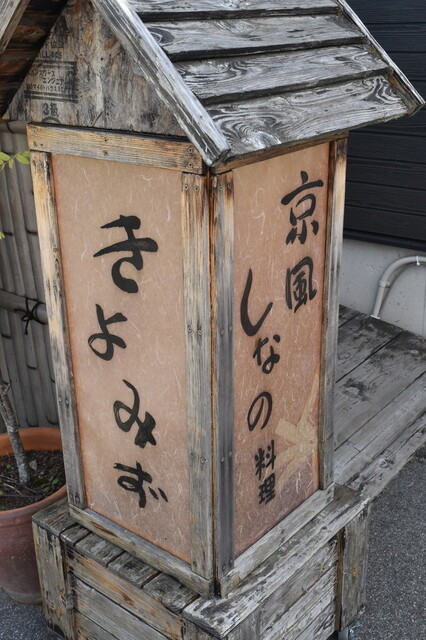 きよみず
京風
しなの
料理